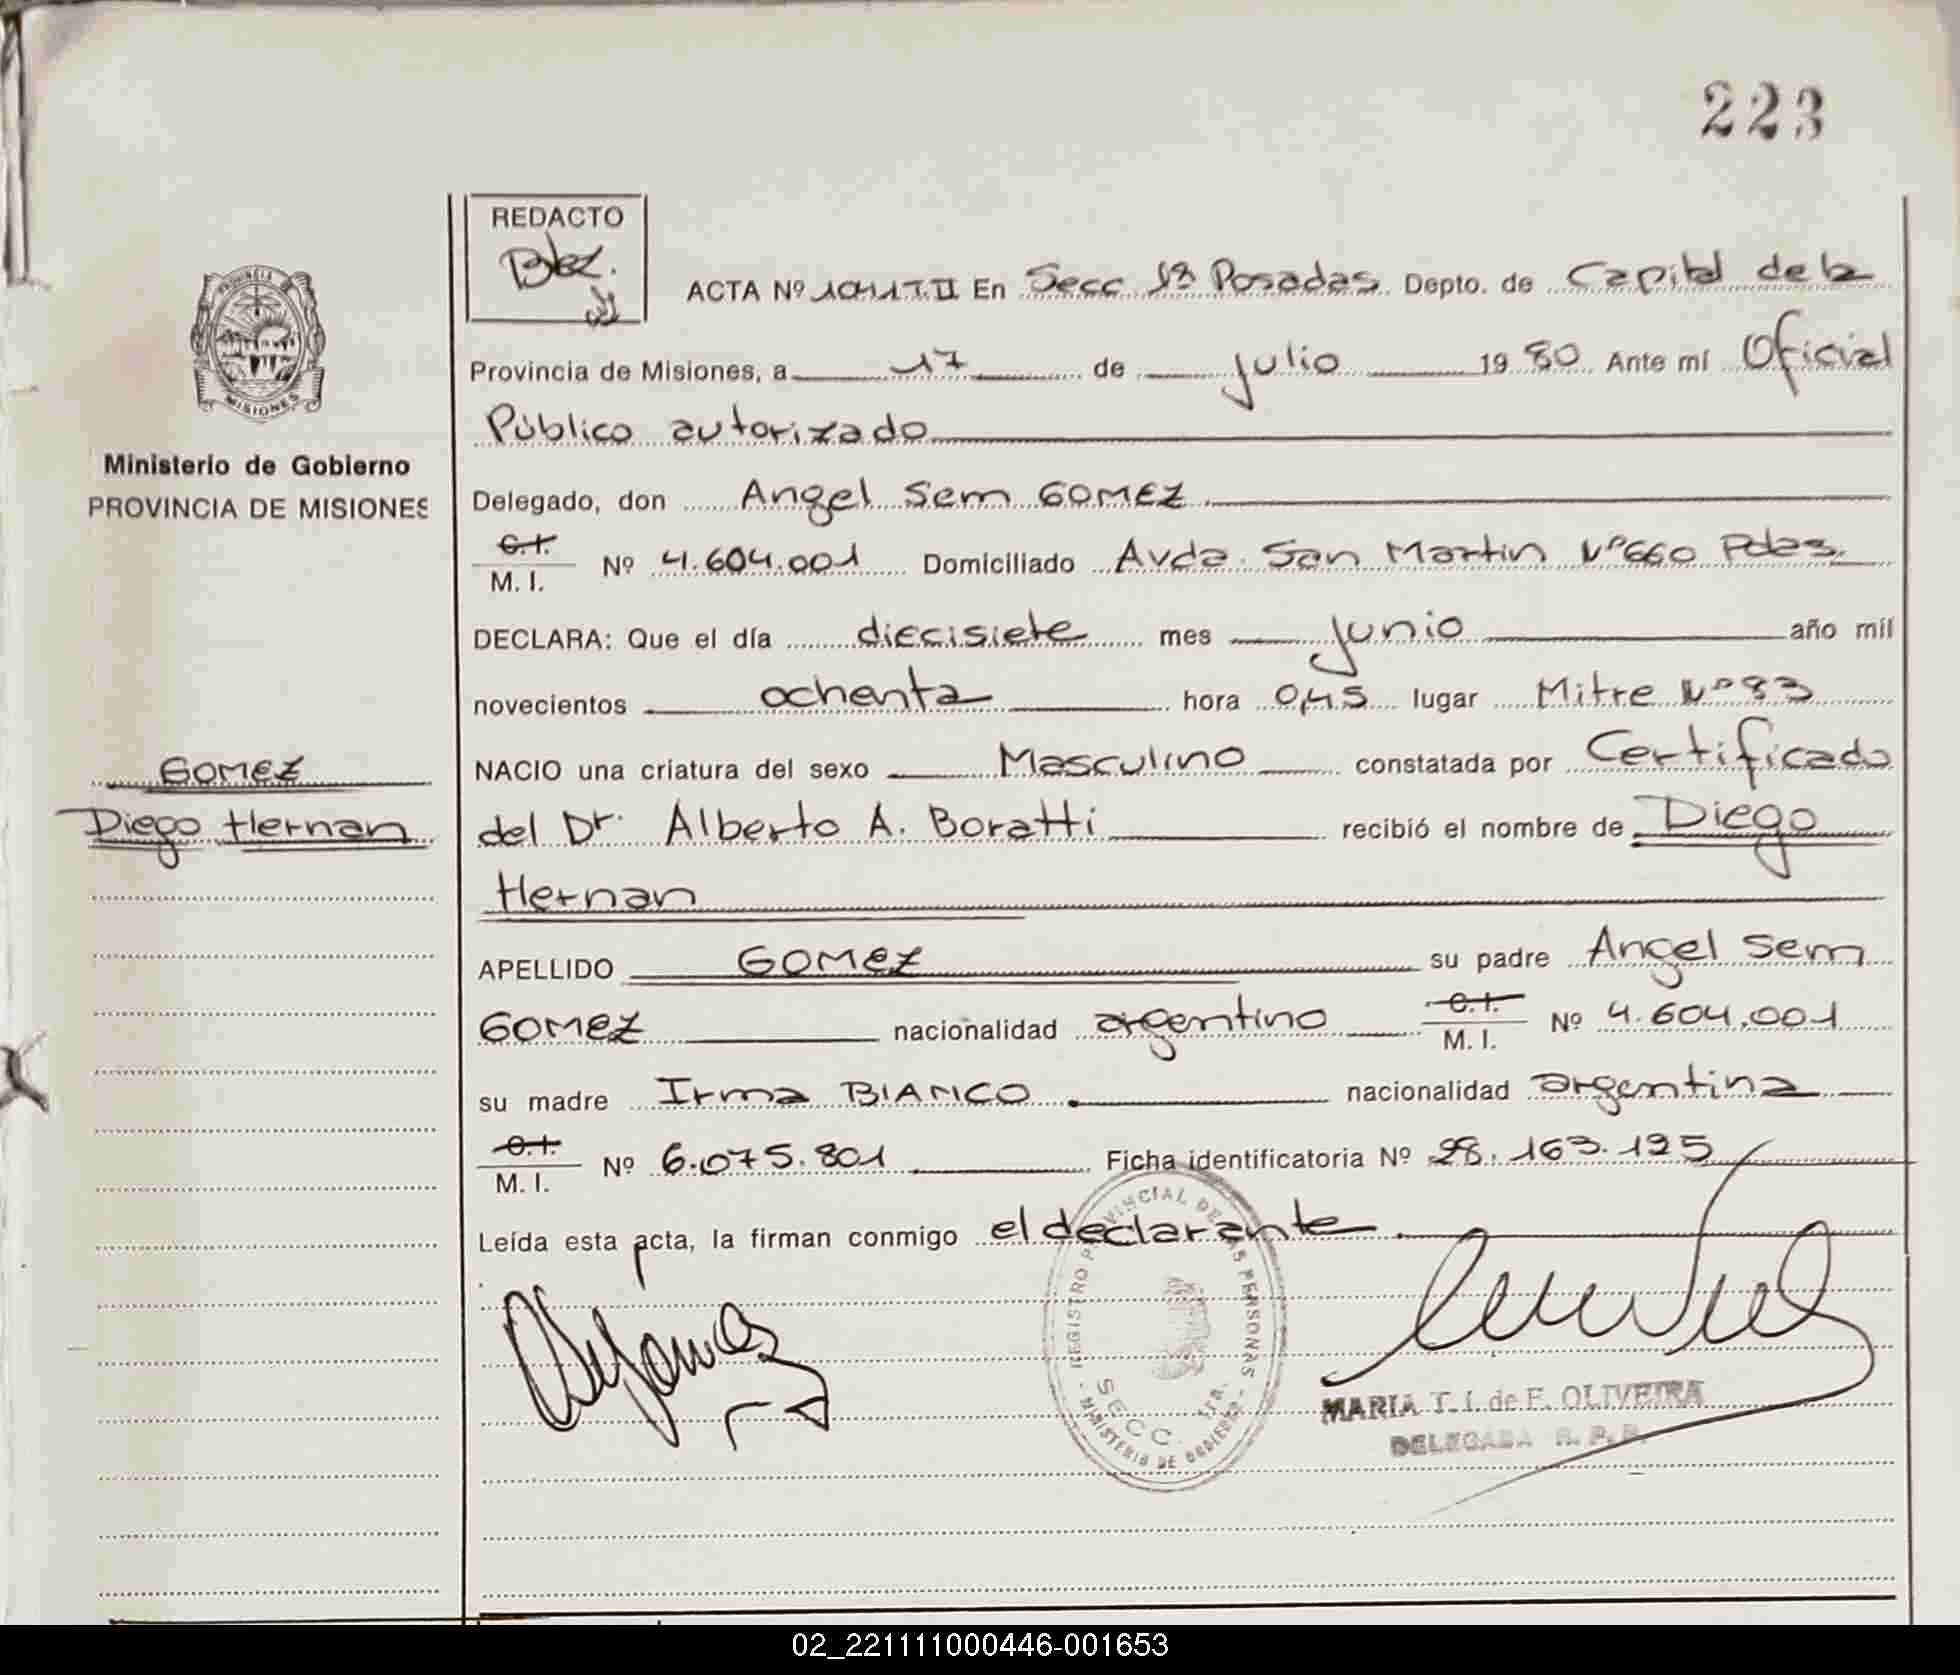 223
REDACTO
Blez.
ACTA Nº 1011 T.II En Secc 1ª Posadas. Depto. de Capital de la
PROVINCIA
MISIONES
Provincia de Misiones, a 17 de julio 1980. Ante mí Oficial
Público autorizado
Ministerio de Gobierno
PROVINCIA DE MISIONES
Delegado, don Angel Sem GOMEZ
C.I.
M. I. Nº 4.604.001 Domiciliado Avda. San Martin Nº 660 Pdas.
DECLARA: Que el día diecisiete mes junio año mil
novecientos ochenta hora 0,45 lugar Mitre Nº 83
GOMEZ
Diego Hernan
NACIO una criatura del sexo Masculino constatada por Certificado
del Dr. Alberto A. Boratti recibió el nombre de Diego
Hernan
APELLIDO GOMEZ su padre Angel Sem
GOMEZ nacionalidad argentino C.I. M. I. Nº 4.604.001
su madre Irma BIANCO nacionalidad argentina
C.I.
M. I. Nº 6.075.801 Ficha identificatoria Nº 28.163.125
Leída esta acta, la firman conmigo el declarante
REGISTRO PROVINCIAL DE LAS PERSONAS
SECC. 1ra.
MINISTERIO DE GOBIERNO
MARIA T. I. de F. OLIVEIRA
DELEGADA R. P. P.
02_221111000446-001653